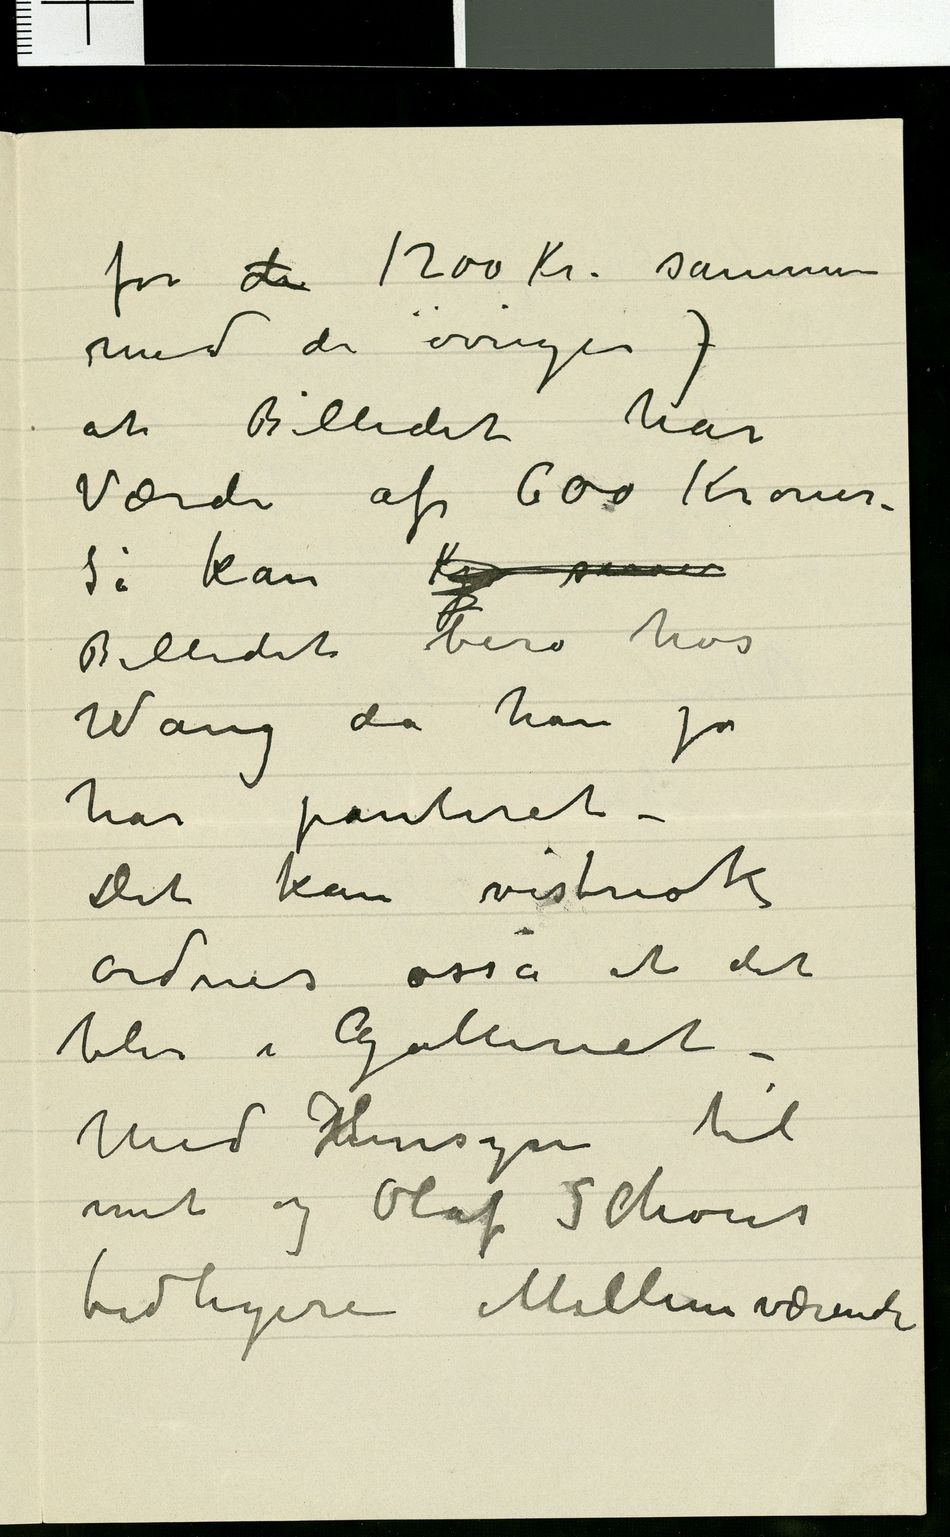 for de 1200 Kr. sammen
med de øvrige )
at Billedet har
Værdi af 600 Kroner.
Så kan
Billedet bero hos
Wang da han jo
har panteret –
Det kan vistnok
ordnes osså at det
blir i Galleriet –
Med Hensyn til
mit og Olaf Schous
tidligere Mellemværende